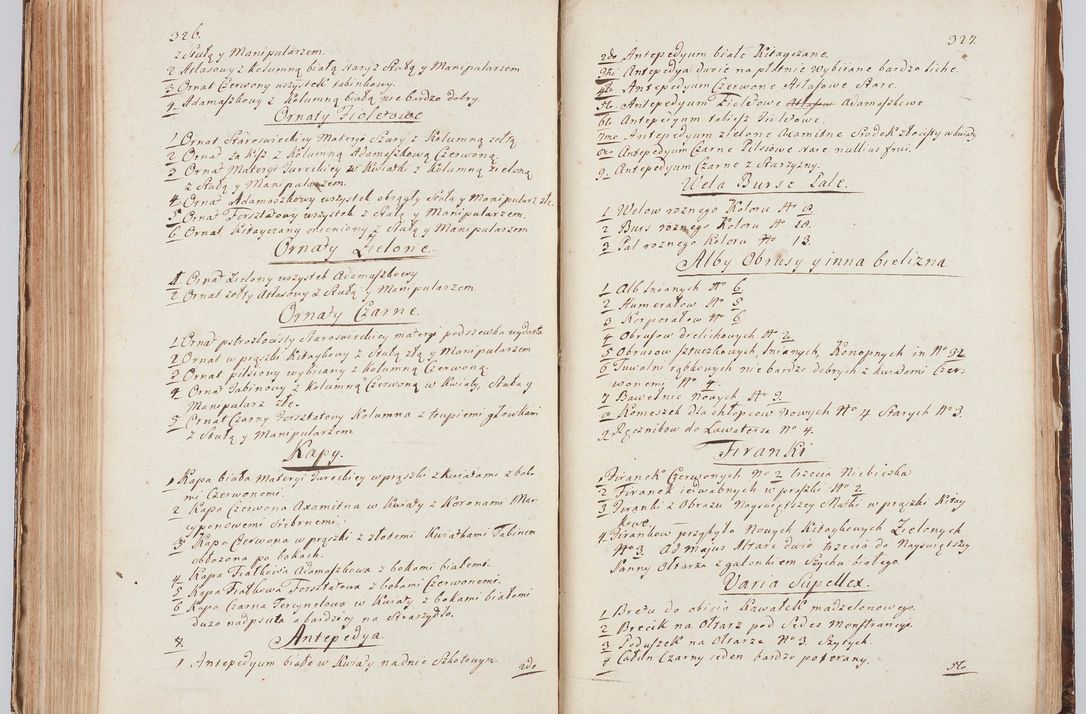 326.
z Stułą y Manipularzem.
2 Atlasowy z kolumną białą stary z Stułą y Manipularzem
3 Ornat Czerwony wszystek tabinkowy.
4 Adamaszkowy z Kolumną białą nie bardzo dobry.
Ornaty Fioletowe
1 Ornat Staroswieckiey Materyi Szary z Kolumną żołtą
2 Ornat z Kolumną Adamaszkową Czerwoną.
3 Ornat Materyi Tureckiey w Kwiatki z Kolumną zieloną
z Stułą y Manipularzem.
4 Ornat Adamaszkowy wszystek okrągły Stuła y Manipularz złe
5 Ornat Forsztatowy wszystek z Stułą y Manipularzem.
6 Ornat Kitayczany mieniony z Stułą y Manipularzem
Ornaty Zielone.
1 Ornat Zielony wszystek Adamaszkowy
2 Ornat żołty Atlasowy z Stułą y Manipularzem
Ornaty Czarne.
1 Ornat pstrozłocisty Staroswieckiey materyi podszewka wydarta
2 Ornat w prążki Kitaykowy z Stułą złą y Manipularzem
3 Ornat pelsiowy wybijany z kolumną Czerwoną.
4 Ornat Tabinowy z Kolumną Czerwoną w Kwiaty, Stuła y
Manipularz złe.
5 Ornat Czarny Forsztatowy Kolumna z trupiemi głowkami
z Stułą y Manipularzem
Kapy.
1 Kapa biała Materyi Tureckiey w prążki z kwiatami z boka
mi Czerwonemi.
2 Kapa Czerwona Axamitna w Kwiaty z Koronami Mar
cyponowemi Srebrnemi.
3 Kapa Czerwona w prążki z złotemi Kwiatkami Tabinem
obłożona po bokach.
4 Kapa Fiałkowa Adamaszkowa z bokami białemi.
5 Kapa Fiałkowa Forsztatowa z bokami Czerwonemi.
6 Kapa Czarna Tercynelowa w Kwiaty z bokami białemi
dużo nadpsuta a bardziey na Straszydło.
8. Antepedya
1 Antepedyum białe w Kwiaty na dnie Szkołowym.
2do
327.
2do Antepedyum białe Kitayczane.
3tio Antepedya dwie na płotnie wybijane bardzo liche.
4to Antepedyum Czerwone Atłasowe Stare.
5to Antepedyum Fioletowe Adamaszkowe
6to Antepedyum takież Fioletowe.
7mo Antepedyum zielone Axamitne Srodek złocisty w kwiaty
8vo Antepedyum Czarne Pelsiowe stare nullius frui.
9. Antepedyum Czarne z Starzyzny.
Wela Burse Pale.
1 Welow roznego Koloru No 9.
2 Burs roznego Koloru No 18.
3 Pal roznego Koloru No 13.
Alby Obrusy y inna bielizna
1 Alb lnianych No 6.
2 Humerałow No 5
3 Korporałow No 6
4 Obrusow drelichowych No 2
5 Obrusow sztuczkowych, lnianych, Konopnych in No 32.
6 Tuwalni rąbkowych nie bardzo dobrych z kwadami Czer-
wonemi No 4.
7 Bawełnic Nowych No 2.
8 Komeszek dla chłopcow Nowych No 4 Starych No 3.
9 Ręcznikow do Lawaterza No 4.
Firanki
1 Firanek Czerwonych No 2 trzecia Niebieska
2 Firanek iedwabnych w prążki No 2
3 Firanki z Obrazu Nayswiętszey Matki w prążki Kitay
kowe.
4 Firankow przybyło Nowych Kitaykowych Zielonych
No 3. Ad majus Altare dwie trzecia do Nayswiętszey
Panny Ołtarza z galonkiem Szycha białego.
Varia Supellex.
1 Breżu do obicia Kawałek madzelonowego.
2 Brecik na Ołtarz pod Sedes Monstrancyi.
3 Poduszek na Ołtarze No 3. Szytych.
4 Całun Czarny ieden bardzo poterany.
5to